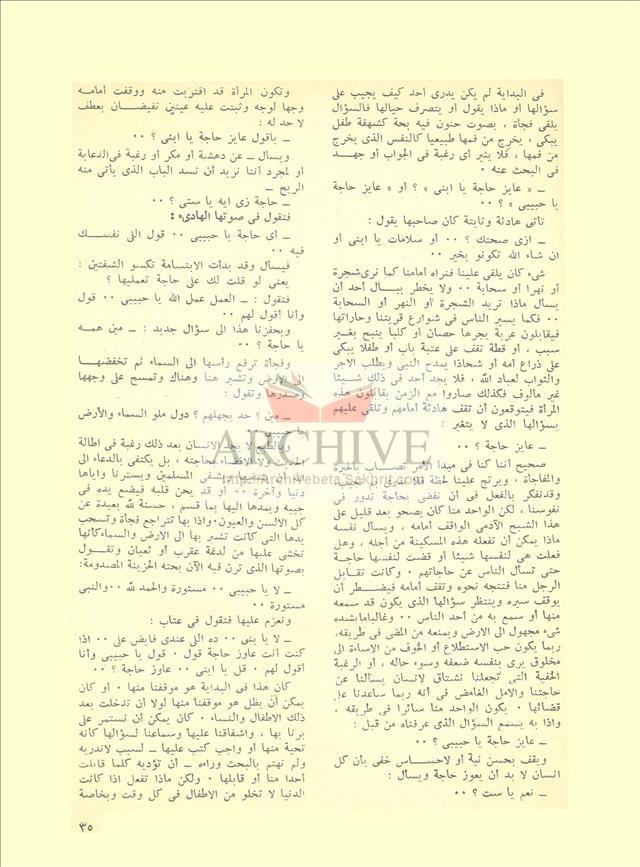 فى البداية لم يكن يدرى أحد كيف يجيب على
سؤالها أو ماذا يقول أو يتصرف حيالها فالسؤال
يلقى فجأة ، بصوت حنون فيه بحة كشهقة طفل
يبكى ، يخرج من فمها طبيعيا كالنفس الذى يخرج
من فمها ، فلا يثير أى رغبة فى الجواب أو جهد
فى البحث عنه ٠
ــ « عايز حاجة يا ابنى » ؟ أو « عايز حاجة
يا حبيبى » ؟ ٠٠
تأتى هادئة وثابتة كان صاحبها يقول :
ــ ازى صحتك ؟ ٠٠ أو سلامات يا ابنى أو
ان شاء الله تكونو بخير ٠٠
شىء كان يلقى علينا فنراه أمامنا كما نرى شجرة
أو نهرا أو سحابة ٠٠ ولا يخطر ببال أحد أن
يسأل ماذا تريد الشجرة أو النهر أو السحابة
٠٠ فكما يسير الناس فى شوارع قريتنا وحاراتها
فيقابلون عربة يجرها حصان أو كلبا ينبح بغير
سبب ، أو قطة تقف على عتبة باب أو طفلا يبكى
على ذراع أمه أو شحاذا يمدح النبى ويطلب الاجر
والثواب لعباد الله ، فلا يجد أحد فى ذلك شيئا
غير مألوف فكذلك صاروا مع الزمن يقابلون هذه
المرأة فيتوقعون أن تقف هادئة أمامهم وتلقى عليهم
بسؤالها الذى لا يتغير :
ــ عايز حاجة ؟ ٠٠
صحيح أننا كنا فى مبدأ الأمر نصاب بالحيرة
والمفاجأة ، ويرتج علينا لحظة فلا ندرى بم نجيب
وقد نفكر بالفعل فى أن نفضى بحاجة تدور فى
نفوسنا ، لكن الواحد منا كان يصحو بعد قليل على
هذا الشبح الآدمى الواقف أمامه ، ويسأل نفسه
ماذا يمكن أن تفعله هذه المسكينة من أجله ، وهل
فعلت هى لنفسها شيئا أو قضت لنفسها حاجة
حتى تسأل الناس عن حاجاتهم ٠ وكانت تقابل
الرجل منا فتتجه نحوه وتقف أمامه فيضطر أن
يوقف سيره وينتظر سؤالها الذى يكون قد سمعه
منها أو سمع به من أحد الناس ٠٠ وغالبا ما يشده
شىء مجهول الى الارض ويمنعه من المضى فى طريقه،
ربما يكون حب الاستطلاع أو الخوف من الاساءة الى
مخلوق يرى بنفسه ضعفه وسوء حاله ، أو الرغبة
الخفية التى تجعلنا نشتاق لانسان يسألنا عن
حاجتنا والامل الغامض فى أنه ربما ساعدنا على
قضائها ٠ يكون الواحد منا سائرا فى طريقه ،
واذا به يسمع السؤال الذى عرفناه من قبل :
ــ عايز حاجة يا حبيبى ؟ ٠٠
ويقف بحسن نية أو لاحساس خفى بأن كل
انسان لا بد أن يعوز حاجة ويسأل :
ــ نعم يا ست ؟ ٠٠
وتكون المرأة قد اقتربت منه ووقفت أمامه
وجها لوجه وثبتت عليه عينين تفيضان بعطف
لا حد له :
ــ باقول عايز حاجة يا ابنى ؟ ٠٠
ويسأل ــ عن دهشة أو مكر أو رغبة فى الدعابة
أو لمجرد أننا نريد أن نسد الباب الذى يأتى منه
الريح ــ
ــ حاجة زى ايه يا ستى ؟ ٠٠
فتقول فى صوتها الهادىء :
ــ أى حاجة يا حبيبى ٠٠ قول اللى نفسك
فيه ٠٠
فيسأل وقد بدأت الابتسامة تكسو الشفتين :
يعنى لو قلت لك على حاجة تعمليها ؟
فتقول : ــ العمل عمل الله يا حبيبى ٠٠ قول
وأنا أقول لهم ٠٠
ويحفزنا هذا الى سؤال جديد : ــ مين همه
يا حاجة ؟ ٠٠
وفجأة ترفع رأسها الى السماء ثم تخفضها
الى الأرض وتشير هنا وهناك وتمسح على وجهها
وصدرها وتقول :
ــ مين ؟ حد يجهلهم ؟ دول ملو السماء والأرض
يا حبيبى
وبالطبع لا يجد الانسان بعد ذلك رغبة فى اطالة
الحديث ولا الافضاء بحاجته ، بل يكتفى بالدعاء الى
الله أن يشفيها ويشفى المسلمين ويسترنا واياها
دنيا وآخرة ٠٠ أو قد يحن قلبه فيضع يده فى
جيبه ويمدها اليها بما قسم ، حسنة لله بعيدة عن
كل الالسن والعيون، واذا بها تتراجع فجأة وتسحب
يدها التى كانت تشير بها الى الارض والسماء كأنها
تخشى عليها من لدغة عقرب أو ثعبان وتقول
بصوتها الذى ترن فيه الآن بحته الحزينة المصدومة:
ــ لا يا حبيبى ٠٠ مستورة والحمد لله ٠٠ والنبى
مستورة ٠٠
ونعزم عليها فتقول فى عتاب :
ــ لا يا بنى ٠٠ ده اللى عندى فايض على ٠٠ اذا
كنت أنت عاوز حاجة قول ٠ قول يا حبيبى وأنا
أقول لهم ٠ قل يا ابنى ٠٠ عاوز حاجة ؟ ٠٠
كان هذا فى البداية هو موقفنا منها ٠ أو كان
يمكن أن يظل هو موقفنا منها لولا ان تدخلت بعد
ذلك الاطفال والنساء ٠ كان يمكن أن نستمر على
برنا بها ، واشفاقنا عليها وسماعنا لسؤالها كأنه
تحية منها أو واجب كتب عليها ــ لسبب لاندريه
ولم نهتم بالبحث وراءه ــ أن تؤديه كلما قابلت
أحدا منا أو قابلها ٠ ولكن ماذا تفعل اذا كانت
الدنيا لا تخلو من الاطفال فى كل وقت وبخاصة
٣٥
ARCHIVE
http://Archivebeta.Sakhrit.com